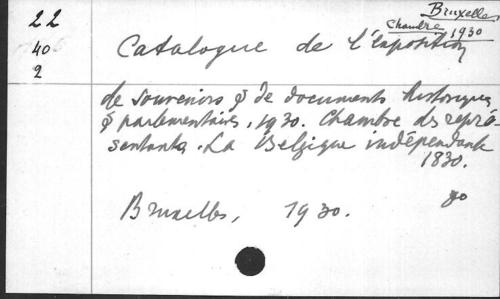 22
40
2
Bruxelles
Chambre 1930
Catalogue de l'Exposition
de souvenirs & de documents historiques
& parlementaires, 1930. Chambre des repré-
sentants. La Belgique indépendante
1830.
Bruxelles, 1930.